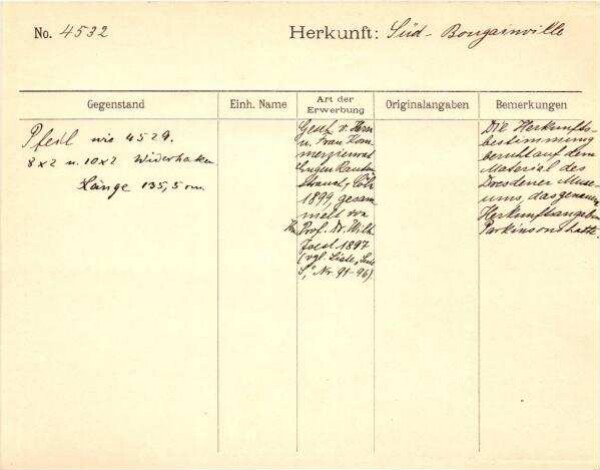 No. 4532
Herkunft: Süd-Bougainville
Gegenstand
Einh. Name
Art der Erwerbung
Originalangaben
Bemerkungen
Pfeil wie 4529.
8x2 u. 10x2 Widerhaken
Länge 135,5 cm
Gesch. v. Herrn
u. Frau Kom-
merzienrat
Eugen Rauten-
strauch, Cöln
1899, gesam-
melt von
Prof. Dr. Wilh.
Joest 1897
(vgl. Liste
Nr. 91-96)
Die Herkunfts-
bestimmung
beruht auf dem
Material des
Dresdener Muse-
ums, das genauere
Herkunftsangaben
Parkinsons hatte.